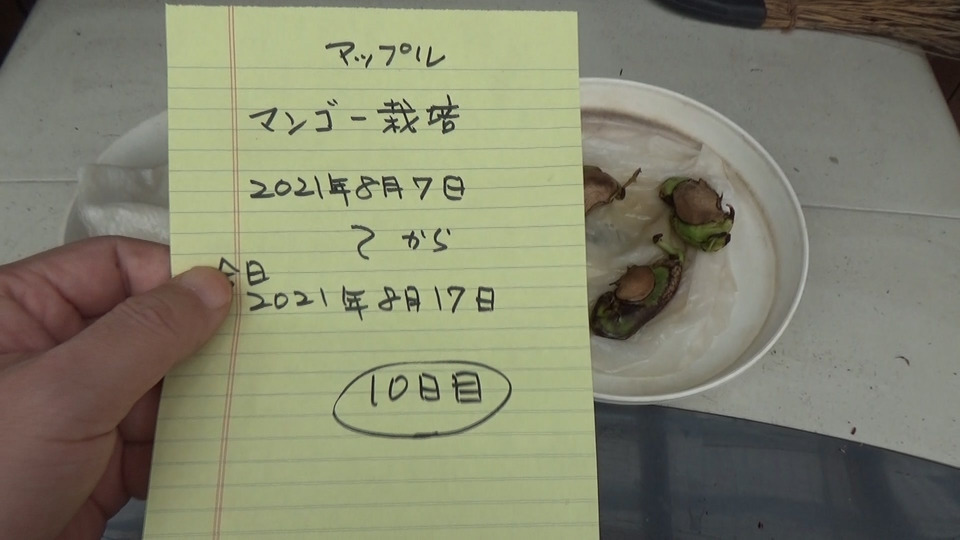 アップル
マンゴー栽培
2021年8月7日
〜から
今日
2021年8月17日
10日目